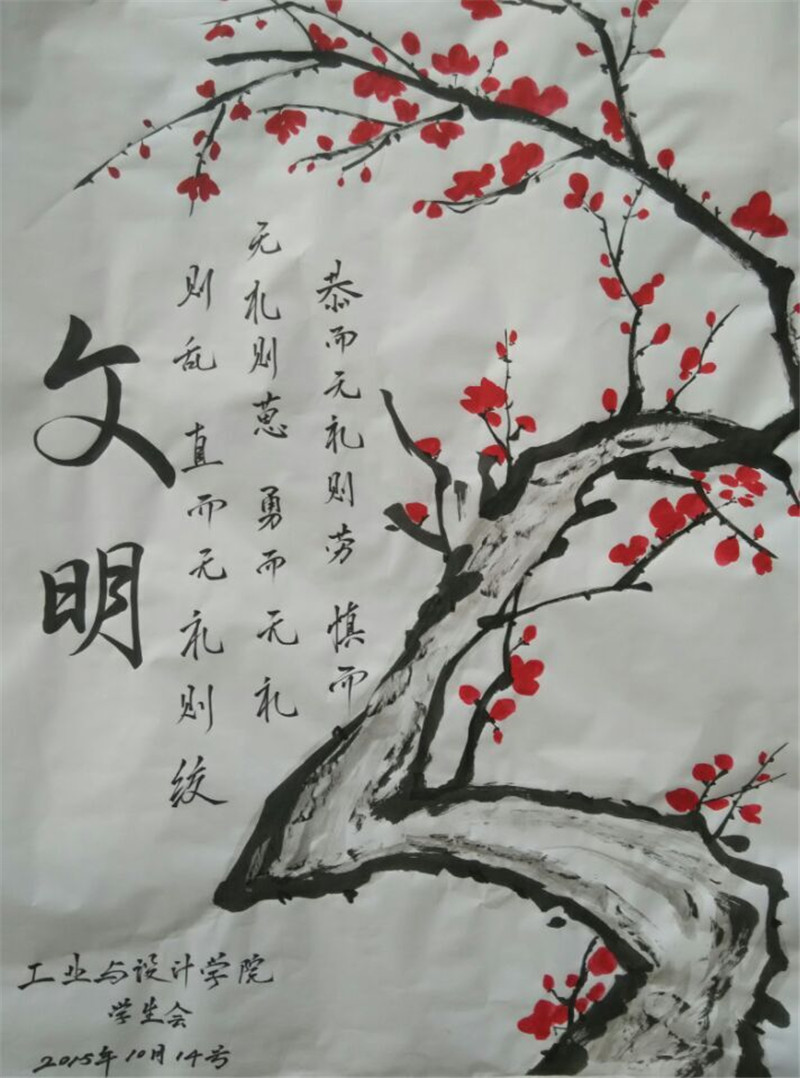 恭而无礼则劳 慎而
无礼则葸 勇而无礼
则乱 直而无礼则绞
文明
工业与设计学院
学生会
2015年10月14号